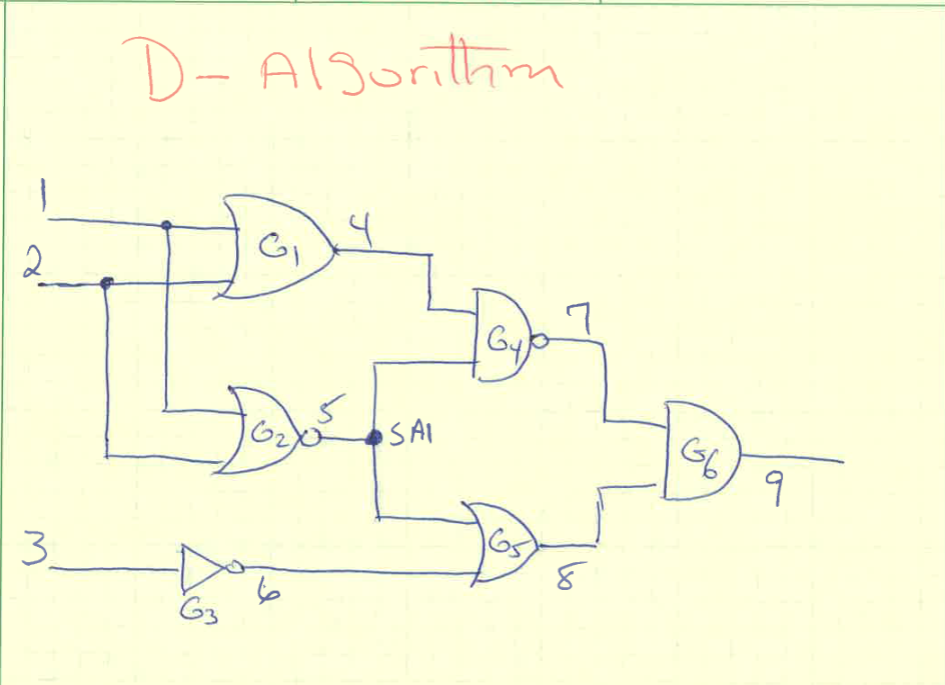 D- Algorithm
1
G1
4
2
G4
7
G2
5
SA1
G6
9
3
G3
6
G5
8